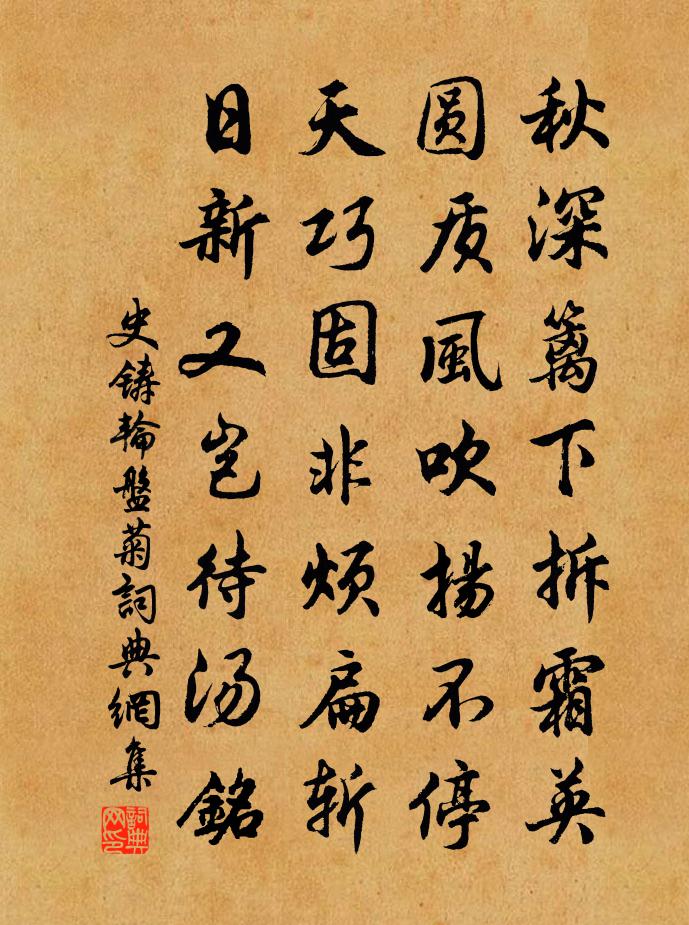 秋深篱下拆霜英
圆质風吹揚不停
天巧固非烦扁斩
日新又岂待汤銘
史鑄輪盤菊詞典網集
詞典网印